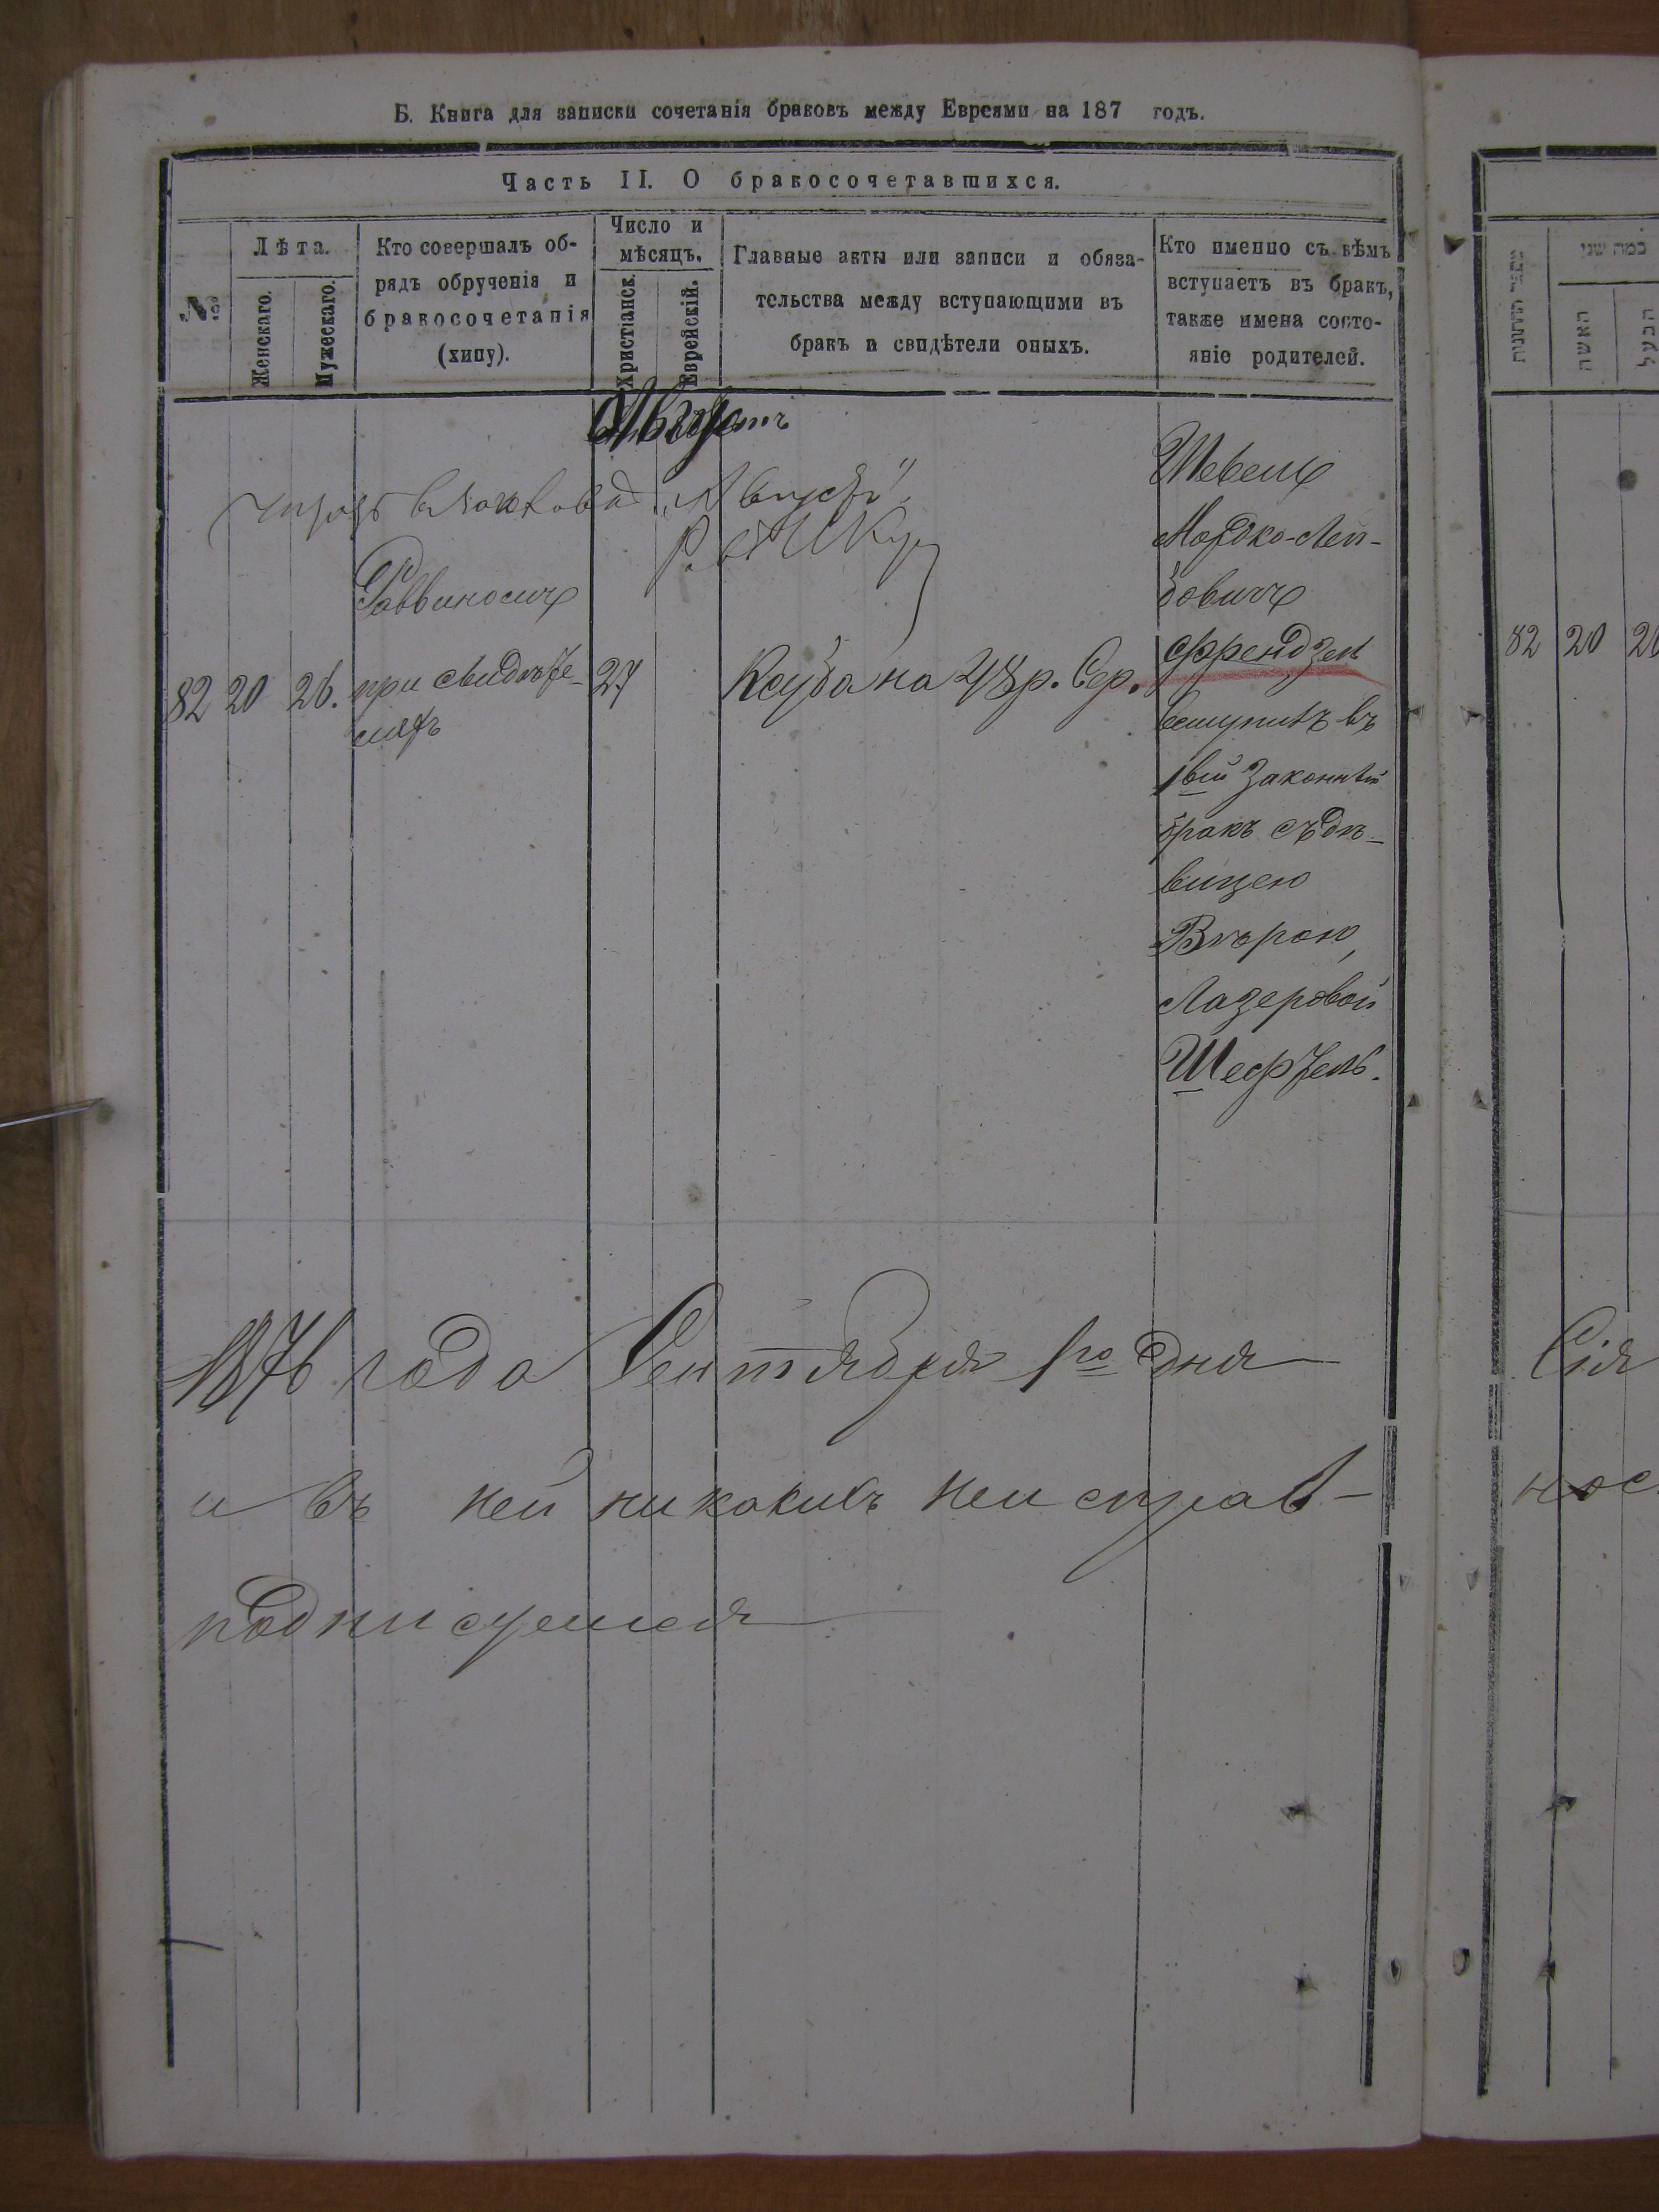 Б. Книга для записки сочетанія браковъ между Евреями на 187 годъ.
Часть II. О бракосочетавшихся.
№
Лѣта.
Женскаго.
Мужескаго.
Кто совершалъ об-
рядъ обрученія и
бракосочетанія
(хипу).
Число и
мѣсяцъ.
Христіанск.
Еврейскій.
Главные акты или записи и обяза-
тельства между вступающими въ
бракъ и свидѣтели оныхъ.
Кто именно съ кѣмъ
вступаетъ въ бракъ,
также имена состо-
яніе родителей.
Августъ
"Августъ"
82 20 26.
Раввиносич
при свидѣте-
ляхъ
27
Кауба на 48 р. Сер.
Шевель
Мордко-Лей-
бовичъ
Френдзель
вступилъ въ
1вый Законный
бракъ съ дѣ-
вицею
Вѣрою,
Лазеровой
Шефтель.
1876 года Сентября 1го дня
и въ ней никакихъ неисправ-
подписуемся
כמה שני
האשה
הבעל
82 20
Сія
нос